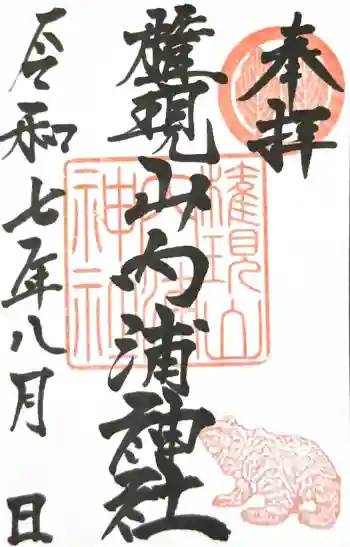 奉拝
権現山内浦神社
令和七年八月 日
権現山
内浦
神社